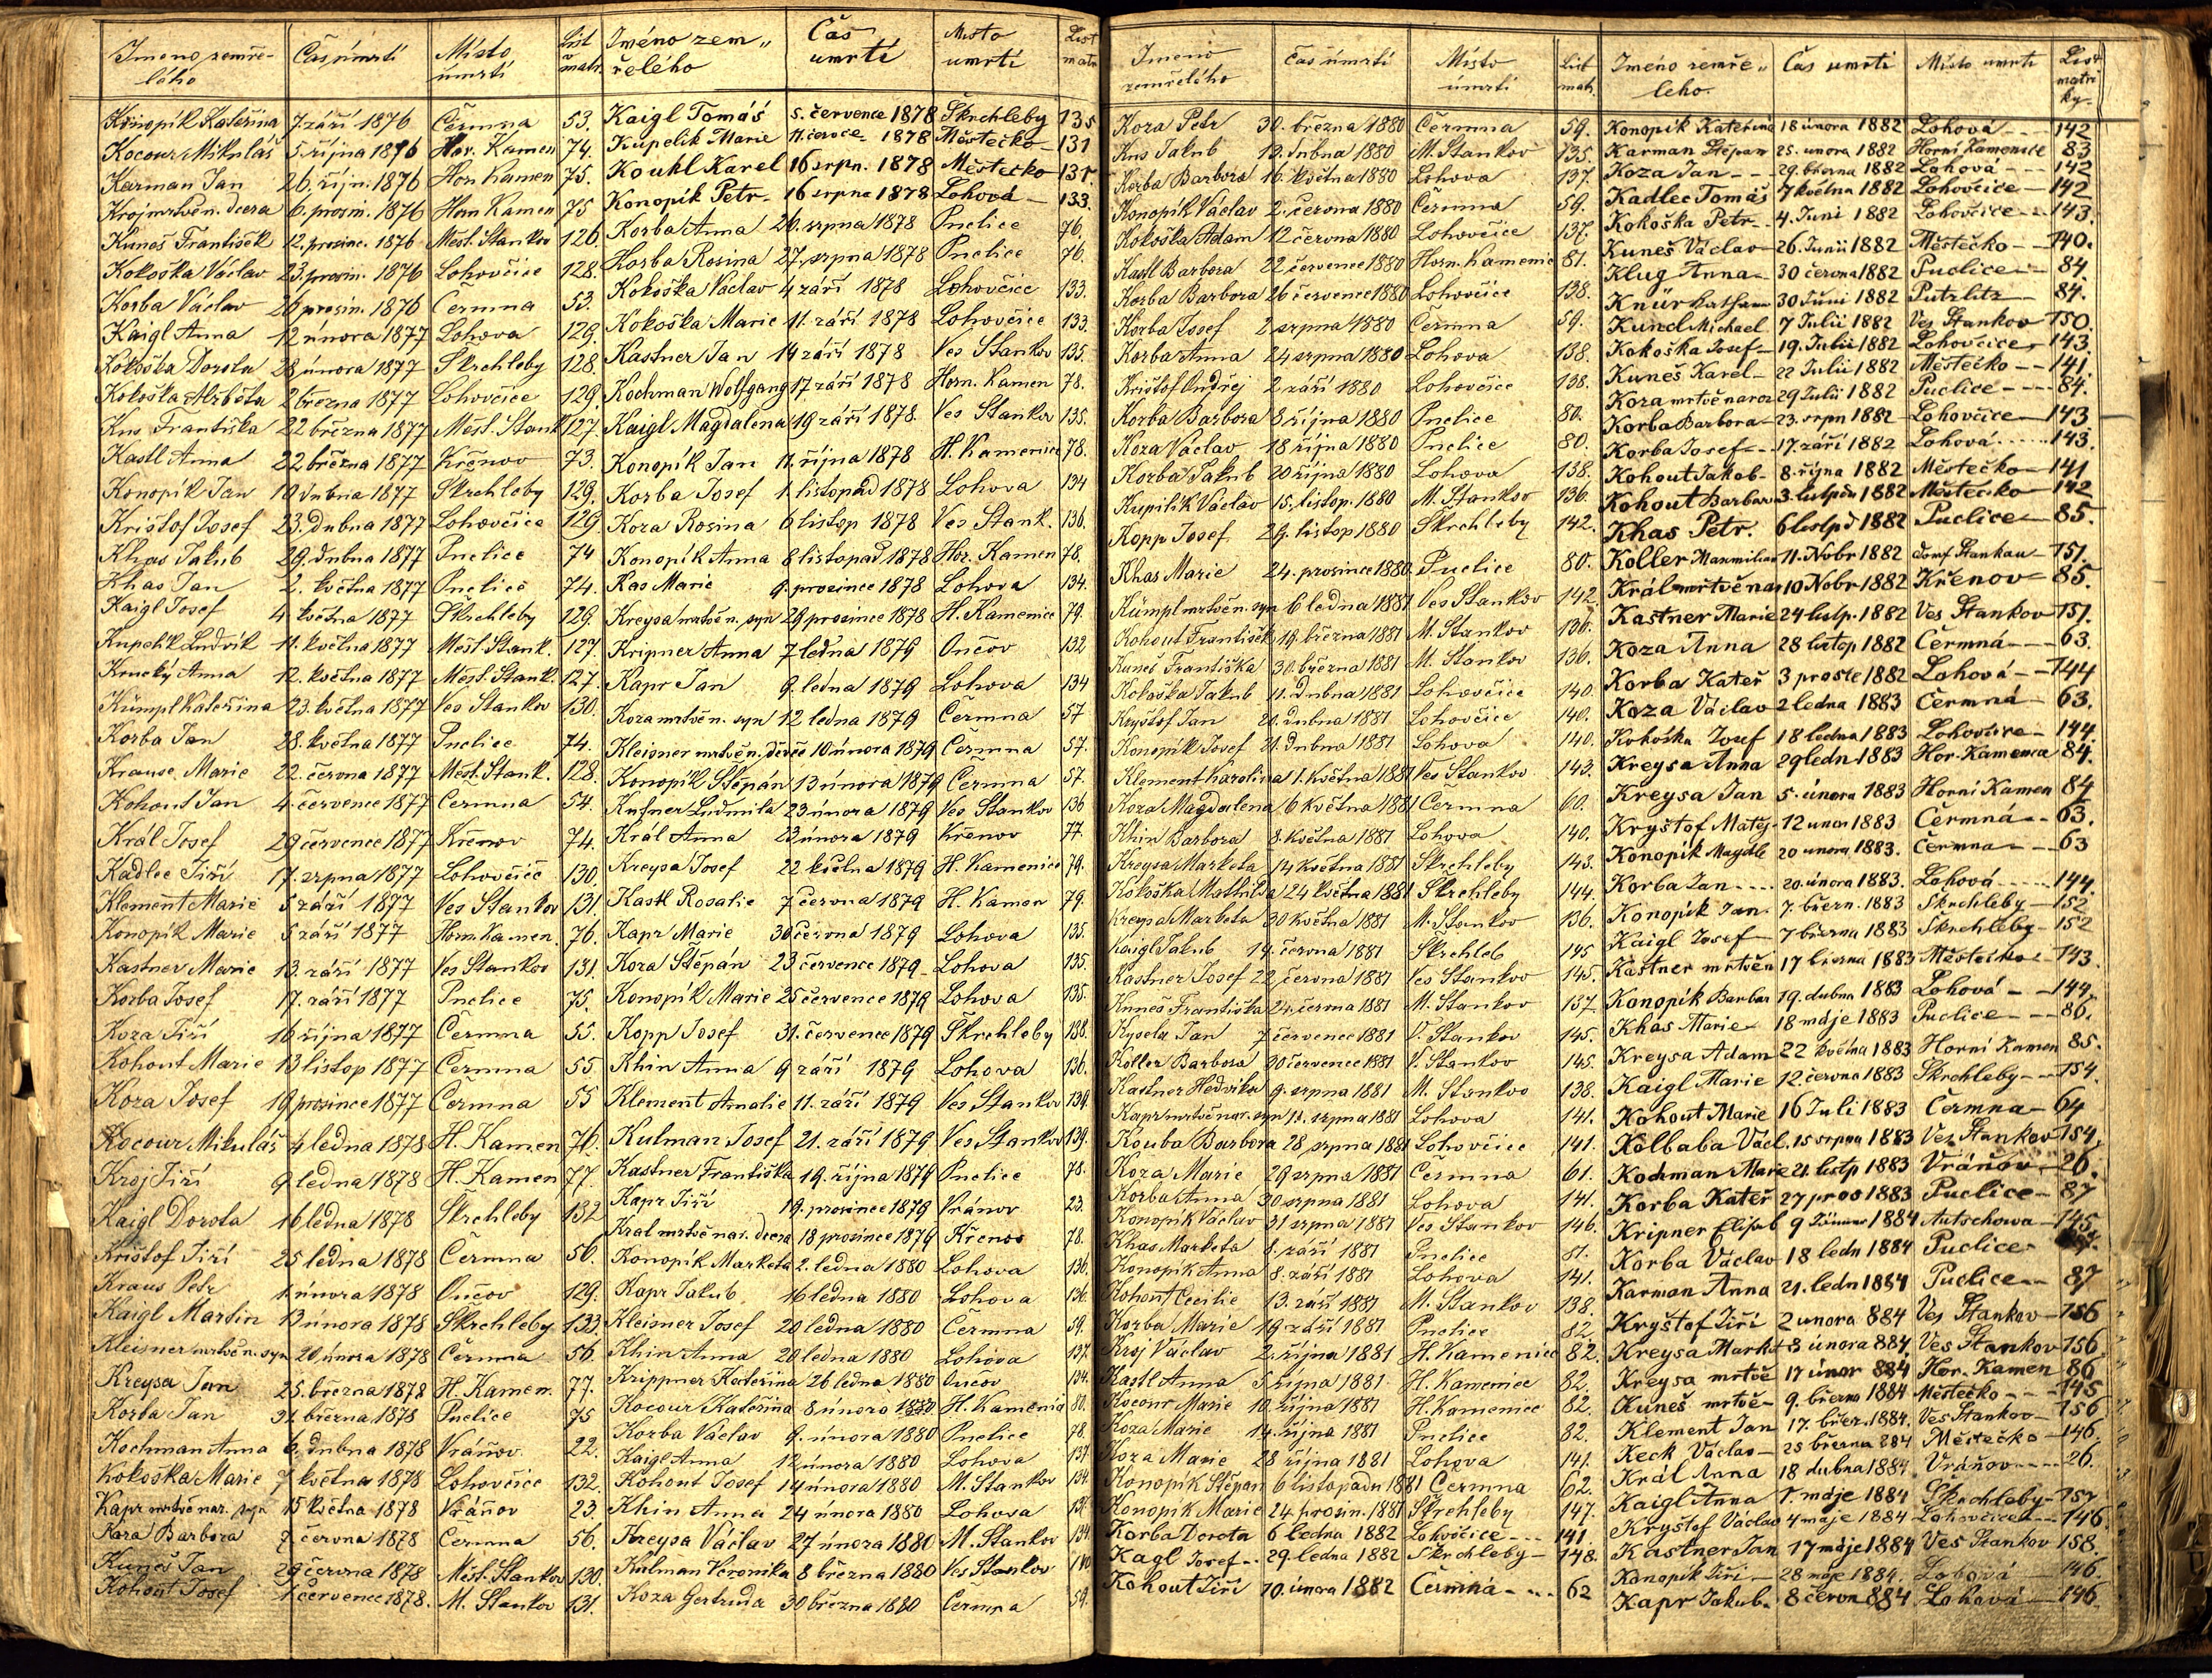 Jmeno zemře-
lého
Čas úmrtí
Místo
úmrtí
List
matr.
Konopík Kateřina 7. září 1876 Čermna 53.
Kocour Mikuláš 5. října 1876 Hor. Kamen 74.
Karman Jan 26. říjn. 1876 Horn Kamen 75.
Kroj mrtvě n. dcera 6. prosin. 1876 Horn Kamen 75
Kuneš František 12. prosinc. 1876 Měst. Stankov 126.
Kokoška Václav 23. prosin. 1876 Lohovčice 128.
Korba Václav 26 prosin. 1876 Čermna 53.
Kaigl Anna 12 února 1877 Lohova 129.
Kokoška Dorota 28 února 1877 Škrchleby 128.
Kokoška Alžběta 2 března 1877 Lohovčice 129.
Kus Františka 22 března 1877 Měst. Stank 127.
Kastl Anna 22 března 1877 Křenov 73.
Konopík Jan 10 dubna 1877 Škrchleby 129.
Krištof Josef 23. dubna 1877 Lohovčice 129.
Khas Jakub 29. dubna 1877 Puclice 74
Khas Jan 2. května 1877 Puclice 74.
Kaigl Josef 4 května 1877 Škrchleby 129.
Kupelik Ludvík 11. května 1877 Měst. Stank. 127.
Krucký Anna 12. května 1877 Měst. Stank. 127.
Kümpl Kateřina 23. května 1877 Ves Stankov 130.
Korba Jan 28. května 1877 Puclice 74.
Krause Marie 22. června 1877 Měst. Stank. 128.
Kohout Jan 4. července 1877 Čermna 54.
Král Josef 29 července 1877 Křenov 74.
Kadlec Jiří 17. srpna 1877 Lohovčice 130.
Klement Marie 5 září 1877 Ves Stankov 131.
Konopík Marie 5 září 1877 Horn. Kamen. 76.
Kastner Marie 13. září 1877 Ves Stankov 131.
Korba Josef 17. září 1877 Puclice 75.
Koza Jiří 16 října 1877 Čermna 55.
Kohout Marie 13 listop 1877 Čermna 55
Koza Josef 19 prosince 1877 Čermna 55
Kocour Mikuláš 4 ledna 1878 H. Kamen 76.
Kroj Jiří 9 ledna 1878 H. Kamen 77.
Kaigl Dorota 16 ledna 1878 Škrchleby 132
Krištof Jiří 25 ledna 1878 Čermna 56.
Kraus Petr 1. února 1878 Ončov 129.
Kaigl Martin 13 února 1878 Škrchleby 133.
Kleisner mrtvě n. syn 20 února 1878 Čermna 56.
Kreysa Jan 25. března 1878 H. Kamen. 77.
Korba Jan 31 března 1878 Puclice 75
Kochman Anna 6. dubna 1878 Vráňov. 22.
Kokoška Marie 7 května 1878 Lohovčice 132.
Kapr mrtvě nar. syn 15 května 1878 Vráňov 23.
Kara Barbora 7 června 1878 Čermna 56.
Kuneš Jan 29 června 1878 Měst. Stankov 130.
Kohout Josef 1 července 1878. M. Stankov 131.
Jméno zem„
řelého
Čas
umrtí
Misto
umrti
List
matr
Kaigl Tomáš 5. července 1878 Škrchleby 135
Kupelik Marie 11. červce 1878 Městečko 131
Koukl Karel 16 srpn. 1878 Městečko 131.
Konopík Petr 16 srpna 1878 Lohová 133.
Korba Anna 26. srpna 1878 Puclice 76.
Korba Rosina 27. srpna 1878 Puclice 76.
Kokoška Václav 4 září 1878 Lohovčice 133.
Kokoška Marie 11. září 1878 Lohovčice 133.
Kastner Jan 14 září 1878 Ves Stankov 135.
Kochman Wolfgang 17 září 1878 Horn. Kamen 78.
Kaigl Magdalena 19 září 1878. Ves Stankov 135.
Konopík Jan 11. října 1878 H. Kamenice 78.
Korba Josef 1. listopad 1878 Lohova 134
Koza Rosina 6 listop 1878 Ves Stank. 136.
Konopík Anna 8 listopad 1878 Hor. Kamen 78.
Kas Marie 9. prosince 1878 Lohova 134.
Kreysa mrtvě n. syn 29 prosince 1878 H. Kamenice 79.
Kripner Anna 7 ledna 1879 Ončov 132
Kapr Jan 9. ledna 1879 Lohova 134
Koza mrtvě n. syn 12 ledna 1879 Čermna 57
Kleisner mrtvě n. děvče 10 února 1879 Čermna 57.
Konopík Štěpán 13 února 1879 Čermna 57.
Kufner Ludmila 23 února 1879 Ves Stankov 136
Král Anna 23 února 1879 Křenov 77.
Kreysa Josef 22 května 1879 H. Kamenice 79.
Kastl Rosalie 7 června 1879 H. Kamen 79.
Kapr Marie 30 června 1879 Lohova 135.
Koza Štěpán 23 července 1879 Lohova 135.
Konopík Marie 25 července 1879 Lohova 135.
Kopp Josef 31. července 1879 Škrchleby 138.
Khin Anna 9 září 1879 Lohova 136.
Klement Amalie 11. září 1879 Ves Stankov 139.
Kulman Josef 21. září 1879 Ves Stankov 139.
Kastner Františka 19. října 1879 Puclice 78.
Kapr Jiří 19. prosince 1879 Vránov 23.
Kral mrtvě nar. dcera 18 prosince 1879 Křenov 78.
Konopík Marketa 2. ledna 1880 Lohova 136.
Kapr Jakub 16 ledna 1880 Lohova 136.
Kleisner Josef 20 ledna 1880 Čermna 59.
Khin Anna 20 ledna 1880 Lohova 137.
Krippner Kateřina 26 ledna 1880 Oucov 134.
Kocour Kateřina 8 února 1880 H. Kamenic 80.
Korba Václav 9. února 1880 Puclice 78.
Kaigl Anna 12 února 1880 Lohova 137
Kohout Josef 14 února 1880 M. Stankov 134
Khin Anna 24 února 1880 Lohova 137
Kreysa Václav 27 února 1880 M. Stankov 134.
Kulman Veronika 8 března 1880 Ves Stankov 140.
Koza Gertruda 30 března 1880 Čermna 59.
Jmeno
zemřelého
Čas úmrtí
Místo
úmrtí
List
matr.
Koza Petr 30. března 1880 Čermna 59.
Kus Jakub 13. dubna 1880 M. Stankov 135.
Korba Barbora 16. května 1880 Lohova 137.
Konopík Václav 2. června 1880 Čermna 59.
Kokoška Adam 12 června 1880 Lohovčice 137.
Kastl Barbora 22 července 1880 Horn. Kamenic 81.
Korba Barbora 26 července 1880 Lohovčice 138.
Korba Josef 2 srpna 1880 Čermna 59.
Korba Anna 24 srpna 1880 Lohova 138.
Krištof Ondřej 2 září 1880 Lohovčice 138.
Korba Barbora 8 října 1880 Puclice 80.
Koza Václav 18 října 1880 Puclice 80.
Korba Jakub 20 října 1880 Lohova 138.
Kupilík Václav 15. listop. 1880 M. Stankov 136.
Kopp Josef 29. listop 1880 Škrchleby 142.
Khas Marie 24. prosince 1880. Puclice 80.
Kümpl mrtvě n. syn 6 ledna 1881 Ves Stankov 142.
Kohout František 19. března 1881 M. Stankov 136.
Kuneš Františka 30. března 1881 M. Stankov 136.
Kokoška Jakub 11. dubna 1881 Lohovčice 140.
Kryštof Jan 21. dubna 1881 Lohovčice 140.
Konopík Josef 21 dubna 1881 Lohova 140.
Klement Karolina 1. května 1881 Ves Stankov 143.
Koza Magdalena 6 května 1881 Čermna 60.
Khin Barbora 8. května 1881 Lohova 140.
Kreysa Marketa 14 května 1881 Škrchleby 143.
Kokoška Mathilda 24 května 1881 Škrchleby 144.
Kreysa Marketa 30 května 1881 M. Stankov 136.
Kaigl Jakub 14. června 1881 Škrchleb 145
Kastner Josef 22. června 1881 Ves Stankov 145.
Kuneš Františka 24. června 1881 M. Stankov 137.
Kysela Jan 7 července 1881 V. Stankov 145.
Koller Barbora 30 července 1881 V. Stankov 145.
Kastner Hedvika 9. srpna 1881 M. Stankov 138.
Kapr mrtvě nar. syn 13. srpna 1881 Lohova 141.
Kouba Barbora 28 srpna 1881 Lohovčice 141.
Koza Marie 29 srpna 1881 Čermna 61.
Korba Anna 30 srpna 1881 Lohova 141.
Konopík Václav 31 srpna 1881 Ves Stankov 146.
Khas Marketa 8. září 1881 Puclice 81.
Konopík Anna 8. září 1881 Lohova 141.
Kohout Cecilie 13. září 1881 M. Stankov 138.
Korba Marie 19 září 1881 Puclice 82
Kroj Václav 2. října 1881 H. Kamenice 82.
Kastl Anna 5 října 1881 H. Kamenice 82.
Kocour Marie 10. října 1881 H. Kamenice 82.
Koza Marie 14. října 1881 Puclice 82.
Koza Marie 28 října 1881 Lohova 141.
Konopík Štěpan 6 listopadu 1881 Čermna 62.
Konopík Marie 24. prosin. 1881 Škrchleby 147.
Korba Dorota 6 ledna 1882 Lohovčice 141
Kagl Josef 29. ledna 1882 Škrchleby 148.
Kohout Jiří 10. února 1882 Čermná 62
Jméno zemře„
lého.
Čas umrti
Místo umrti
List
matri
ky.
Konopík Kateřina 18 února 1882 Lohová 142
Karman Štěpan 25. unora 1882 Horní Kamenice 83
Koza Jan 29. března 1882 Lohová 142
Kadlec Tomáš 7 května 1882 Lohovčice 142
Kokoška Petr 4. Juni 1882 Lohovčice 143.
Kuneš Václav 26. Junii 1882 Městečko 140.
Klug Anna 30 června 1882 Puclice 84.
Knür Kathar 30 Juni 1882 Putzlitz 84.
Kuncl Michael 7 Julii 1882 Ves Stankov 150.
Kokoška Josef 19. Julii 1882 Lohovčice 143.
Kuneš Karel 22 Julii 1882 Městečko 141.
Koza mrtvě naroz 29 Julii 1882 Puclice 84.
Korba Barbora 23. srpn 1882 Lohovčice 143
Korba Josef 17. září 1882 Lohová 143.
Kohout Jakob 8. října 1882 Městečko 141
Kohout Barbar 3. listpdu 1882 Městečko 142
Khas Petr. 6 listpd 1882 Puclice 85.
Koller Maxmilian 11. Nobr 1882 Dorf Stankau 151.
Král mrtvě nar 10 Nobr 1882 Křenov 85.
Kastner Marie 24 listp. 1882 Ves Stankov 151.
Koza Anna 28 listop 1882 Čermná 63.
Korba Kateř 3 proste 1882 Lohová 144
Koza Václav 2 ledna 1883 Čermná 63.
Kokoška Josef 18 ledna 1883 Lohovčice 144.
Kreysa Anna 29 ledn 1883 Hor. Kamenca 84.
Kreysa Jan 5. února 1883 Horní Kamen 84
Kryštof Matěj 12 unor 1883 Čermná 63.
Konopík Magdle 20 unora 1883. Čermna 63
Korba Jan 20. února 1883. Lohová 144.
Konopík Jan. 7. březn. 1883 Skrchleby 152
Kaigl Josef 7 března 1883 Skrchleby 152
Kastner mrtvěn 17 března 1883 Městečko 143.
Konopík Barbar 19. dubna 1883 Lohová 144.
Khas Marie 18 máje 1883 Puclice 86.
Kreysa Adam 22 května 1883 Horní Kamen 85.
Kaigl Marie 12. června 1883 Skrchleby 154.
Kohout Marie 16 Juli 1883 Čermna 64
Kolbaba Václ. 15 srpna 1883 Ves Stankov 154.
Kochman Marie 21. listp 1883 Vráňov 26.
Korba Kateř 27 pros 1883 Puclice 87
Kripner Elisab 9 Jänner 1884 Autschowa 145.
Korba Václav 18 ledn 1884 Puclice
Karman Anna 21. ledn 1884 Puclice 87
Kryštof Jiří 2 unora 884 Ves Stankov 156
Kreysa Markt 3 února 884. Ves Stankov 156.
Kreysa mrtvě 17 únor 884 Hor. Kamen 86
Kuneš mrtvě 9. března 1884 Městečko 145
Klement Jan 17. březn. 1884. Ves Stankov 156
Keck Václav 25 března 884 Městečko 146.
Král Anna 18 dubna 1884 Vráňov 26.
Kaigl Anna 1. máje 1884 Škrchleby 157
Kryštof Václav 4 máje 1884 Lohovčice 146.
Kastner Jan 17 máje 1884 Ves Stankov 158.
Konopík Jiří 28 máje 1884. Lohová 146.
Kapr Jakub. 8 červn 884 Lohová 146.